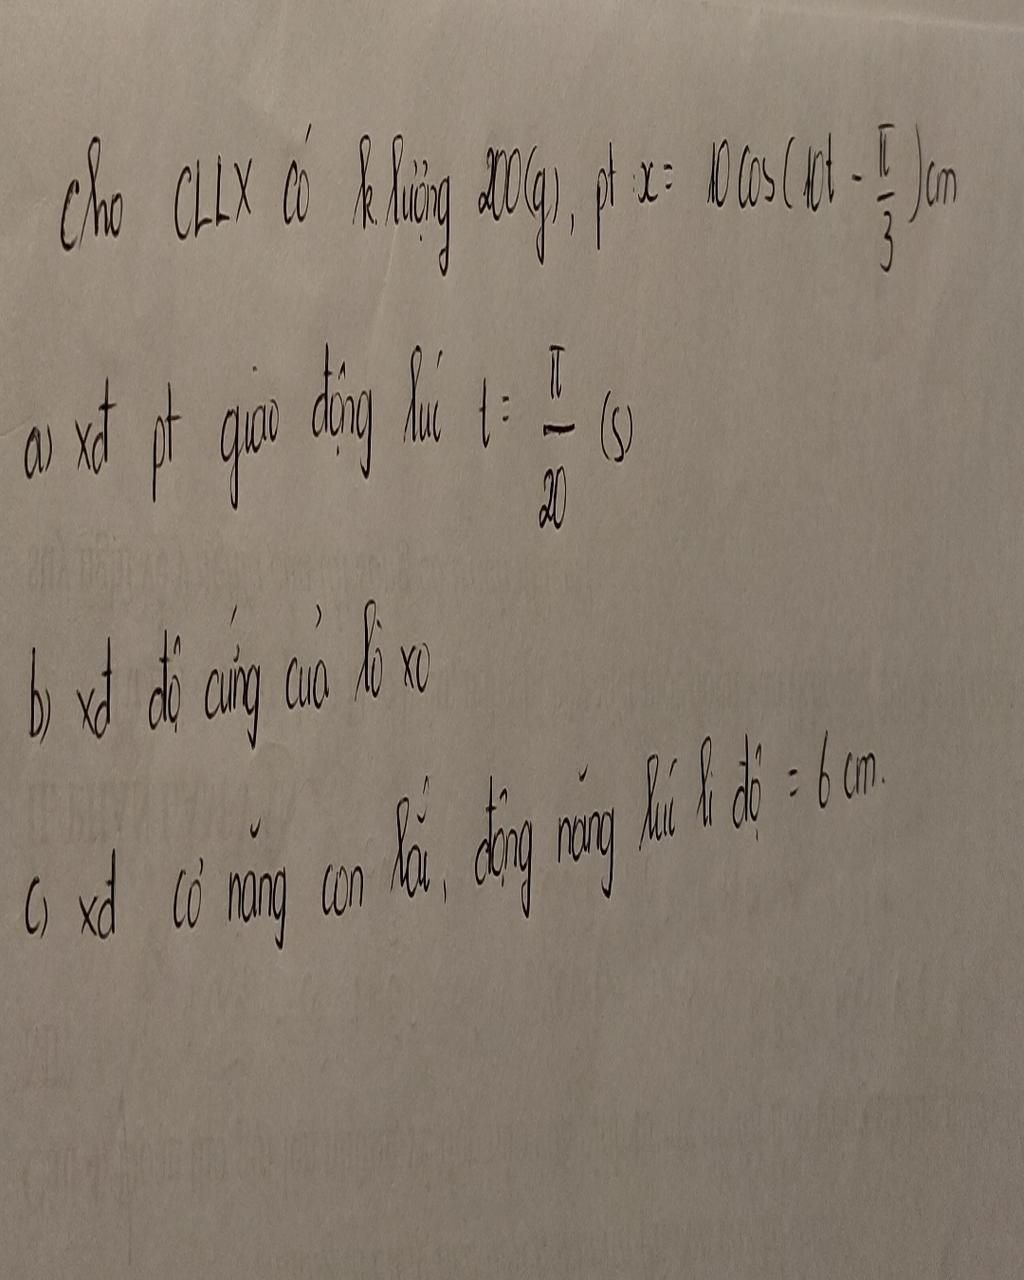 Cho CLLX có k.lượng 200(g), pt x = 10cos(10t - π/3)cm
a) xđ pt giao động lúc t = π/20 (s)
b) xđ độ cứng của lò xo
c) xđ cơ năng con lắc, động năng lúc li độ = 6 cm.